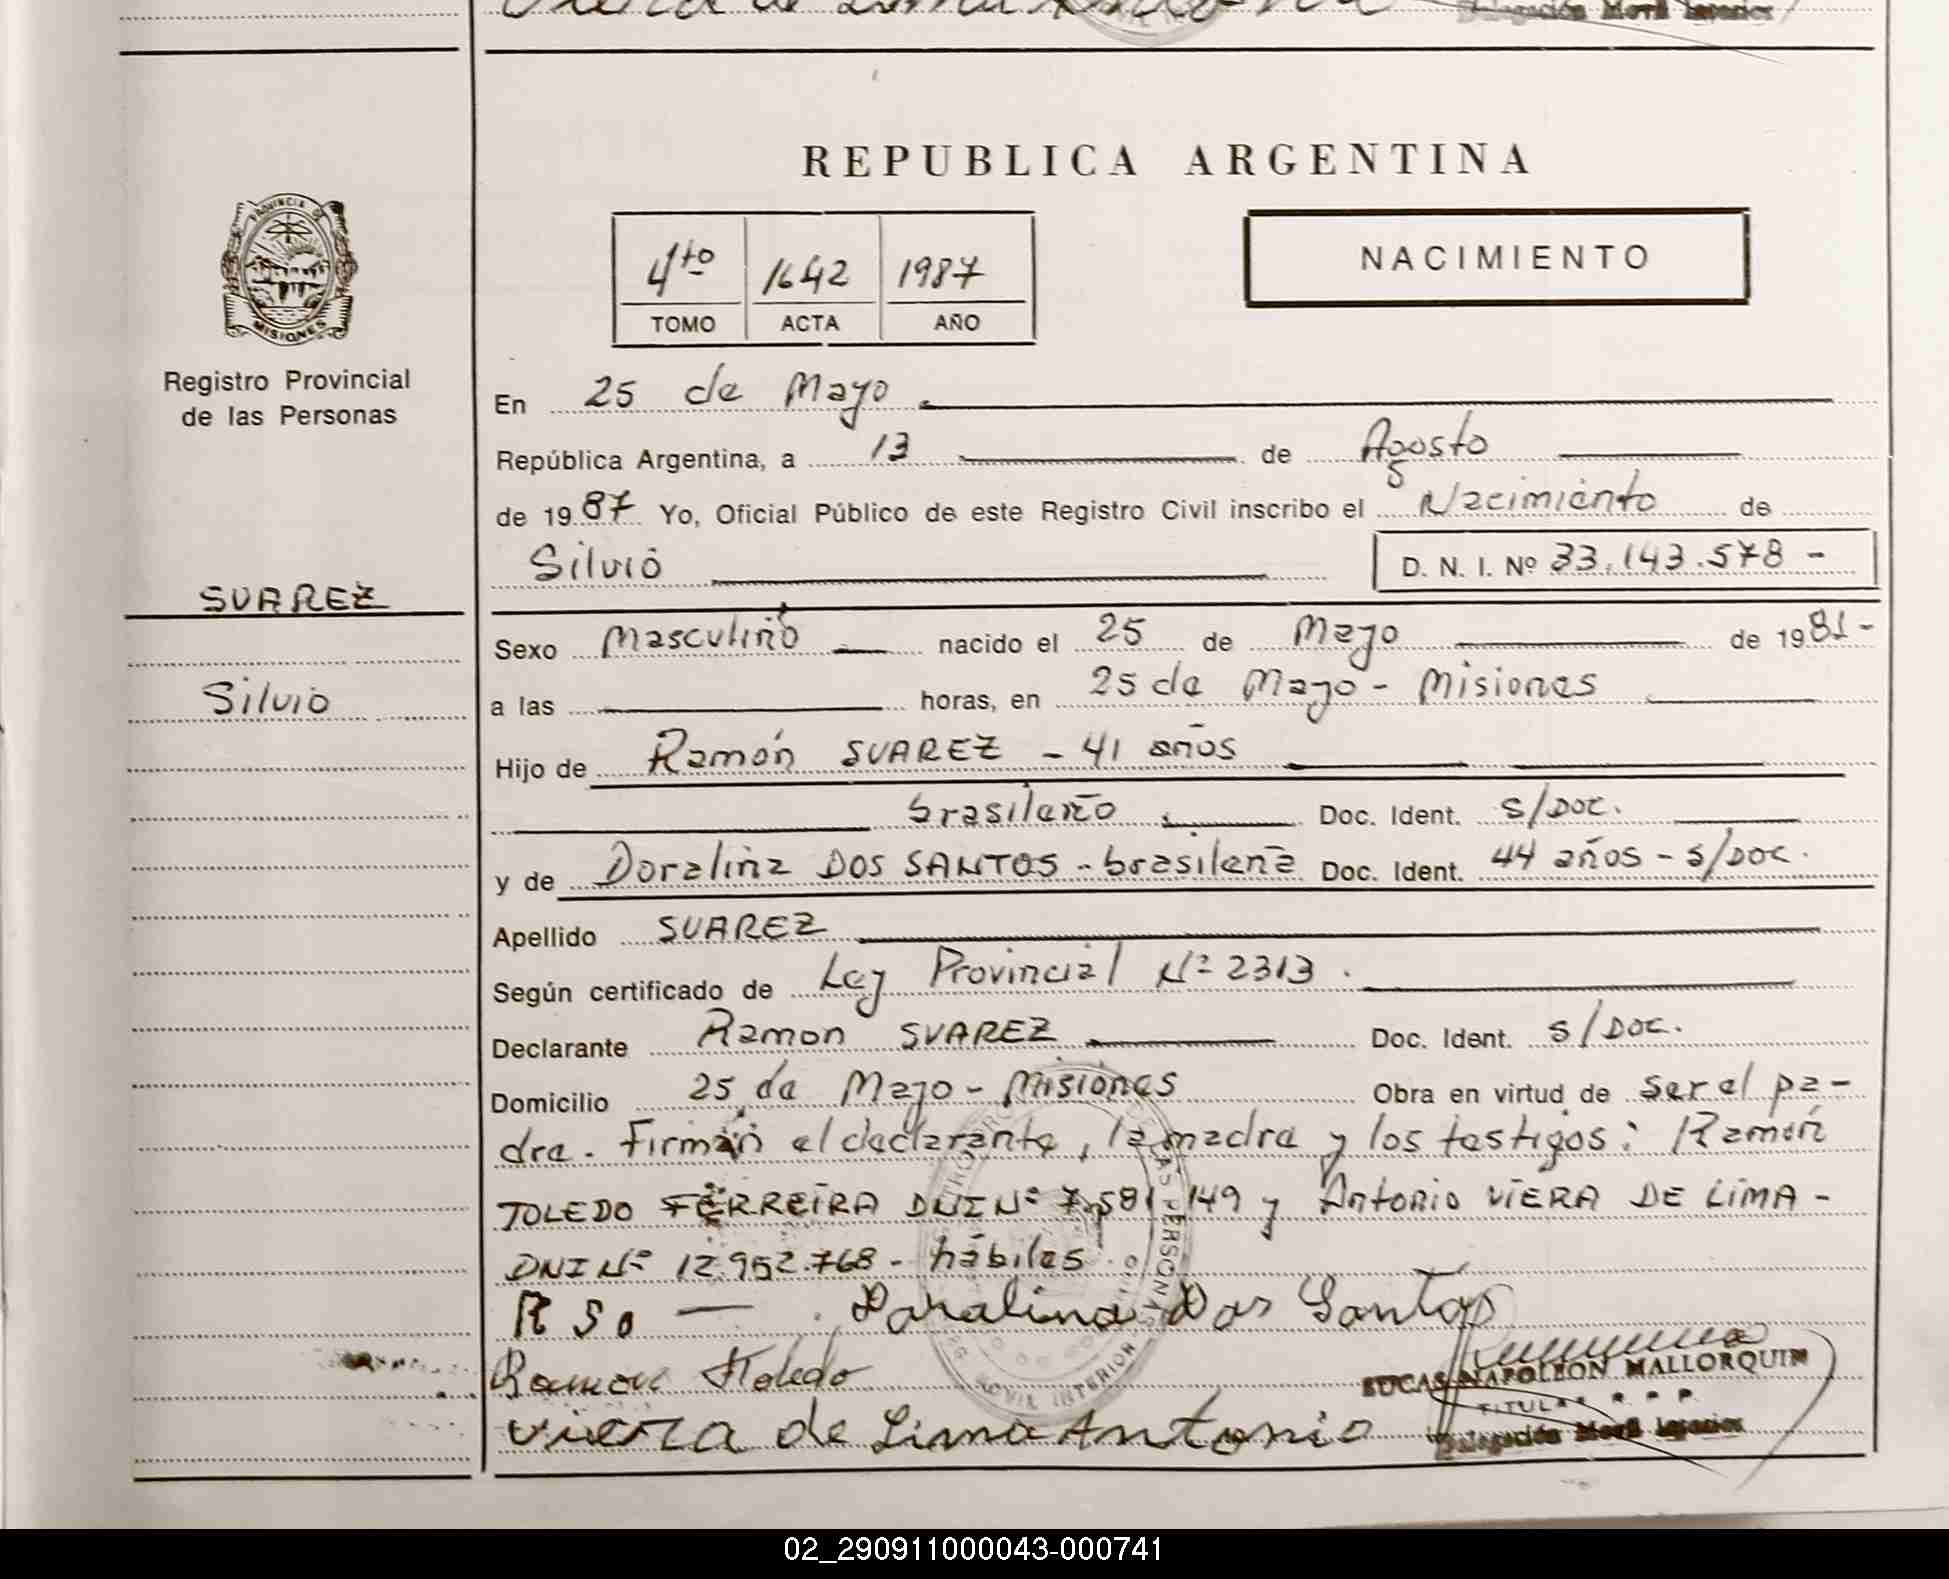 Viera de Lima Antonio
Delegación Movil Interior
REPUBLICA ARGENTINA
PROVINCIA DE
MISIONES
4to 1642 1987
TOMO ACTA AÑO
NACIMIENTO
Registro Provincial
de las Personas
SUAREZ
Silvio
En 25 de Mayo
República Argentina, a 13 de Agosto
de 1987 Yo, Oficial Público de este Registro Civil inscribo el Nacimiento de
Silvio D. N. I. Nº 33.143.578 -
Sexo Masculino nacido el 25 de Mayo de 1981-
a las horas, en 25 de Mayo - Misiones
Hijo de Ramón SUAREZ - 41 años
brasileño. Doc. Ident. s/Doc.
y de Doralina DOS SANTOS - brasileña Doc. Ident. 44 años - s/Doc.
Apellido SUAREZ
Según certificado de Ley Provincial Nº 2313.
Declarante Ramon SUAREZ Doc. Ident. s/Doc.
Domicilio 25 de Mayo - Misiones Obra en virtud de ser el pa-
dre. Firman el declarante, la madre y los testigos: Ramón
TOLEDO FERREIRA DNI Nº 7.581.149 y Antonio VIERA DE LIMA -
DNI Nº 12.952.768 - hábiles.
R So — Doralina Dos Santos
Ramon Toledo
LUCAS NAPOLEON MALLORQUIN
TITULAR R. P. P.
Viera de Lima Antonio
Delegación Movil Interior
02_290911000043-000741